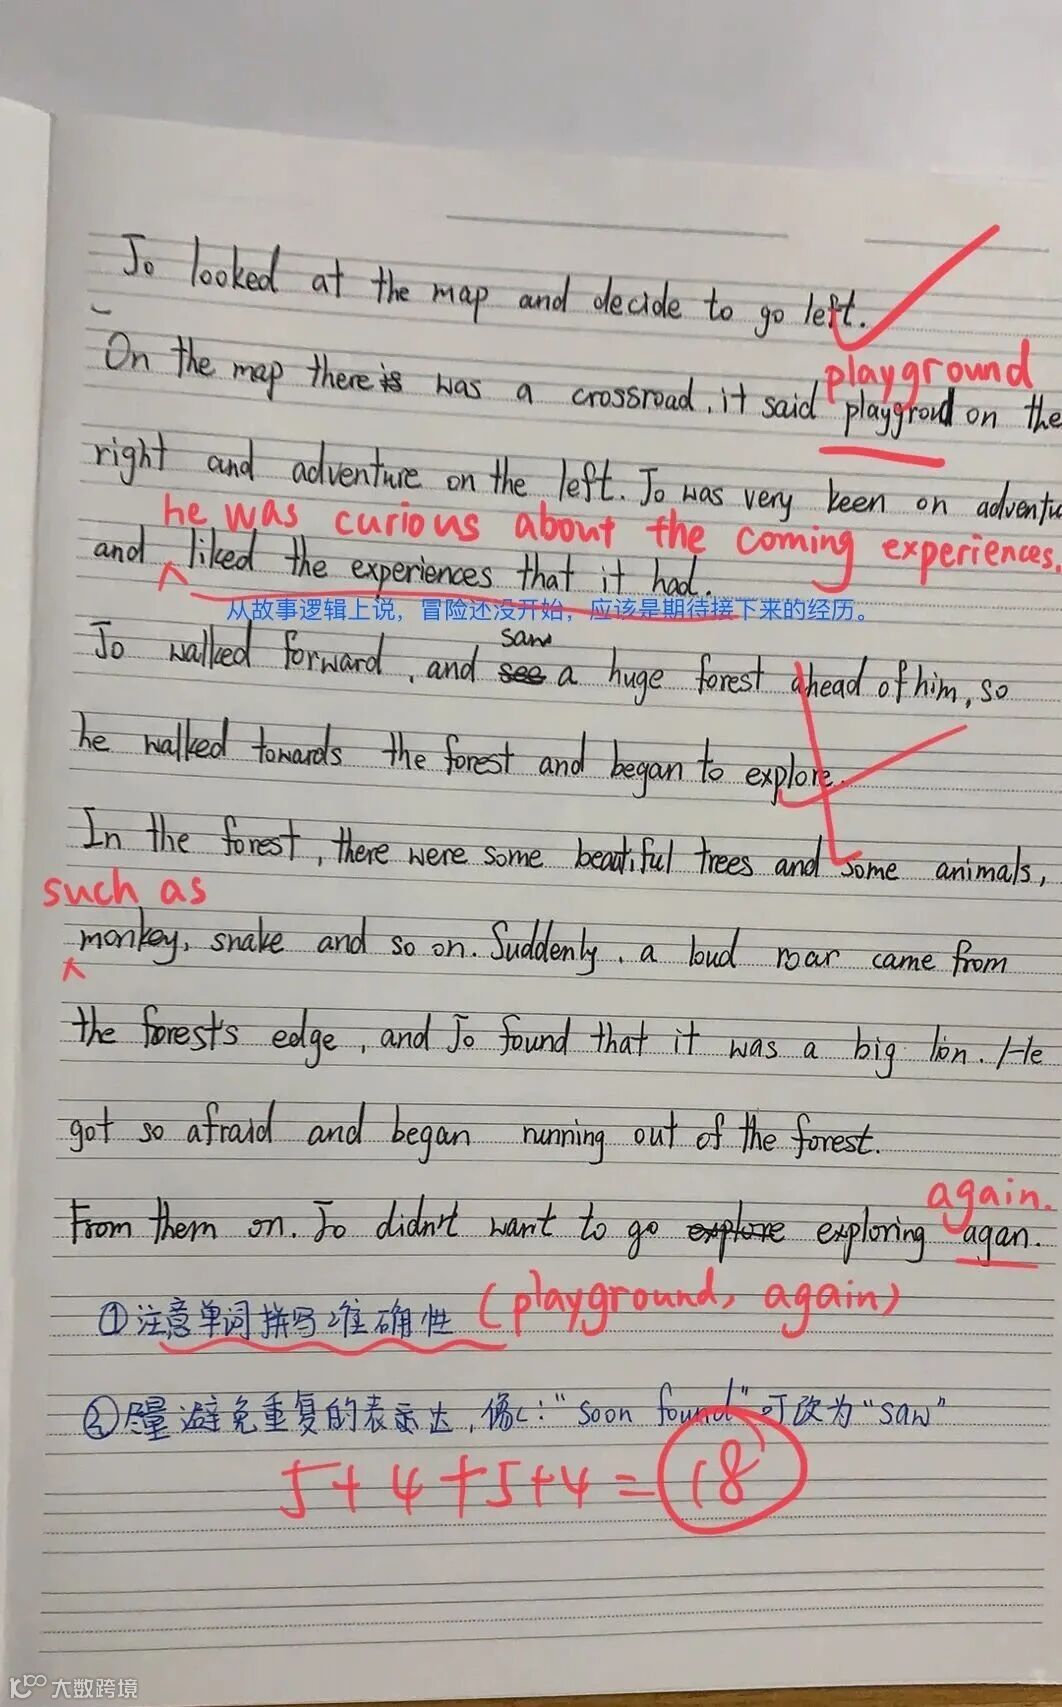 Jo looked at the map and decide to go left.
playground
On the map there is was a crossroad, it said playgroud on the
right and adventure on the left. Jo was very keen on adventu
he was curious about the coming experiences.
and liked the experiences that it had.
从故事逻辑上说，冒险还没开始，应该是期待接下来的经历。
saw
Jo walked forward, and see a huge forest ahead of him, so
he walked towards the forest and began to explore.
In the forest, there were some beautiful trees and some animals,
such as
monkey, snake and so on. Suddenly, a loud roar came from
the forest's edge, and Jo found that it was a big lion. He
got so afraid and began running out of the forest.
again.
From them on. Jo didn't want to go explore exploring agan.
①注意单词拼写准确性 (playground, again)
②尽量避免重复的表示达, 像: "soon found" 可改为 "saw"
5+4+5+4=18
大数跨境